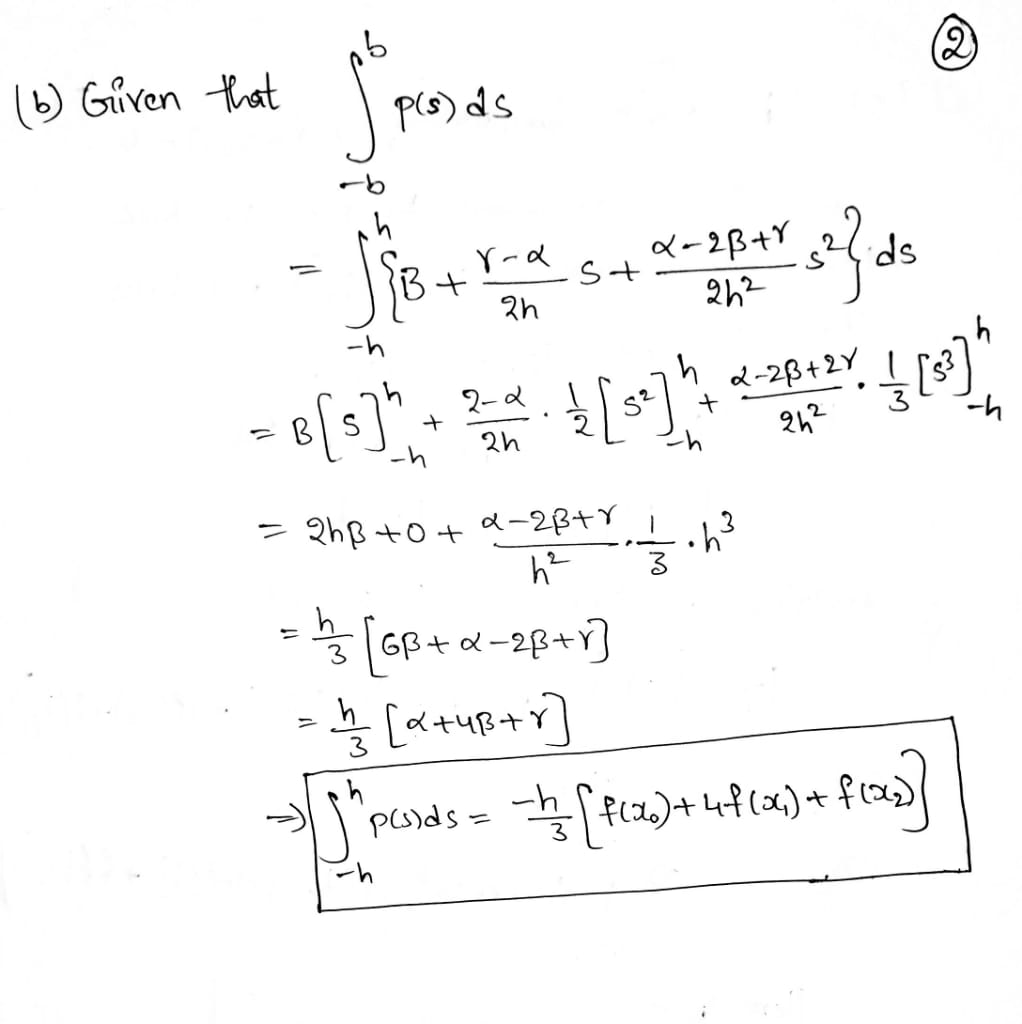 ②
(b) Given that ∫_{-b}^{b} p(s) ds
= ∫_{-h}^{h} {β + (γ-α)/2h s + (α-2β+γ)/2h² s²} ds
= β[s]_{-h}^{h} + (2-α)/2h · 1/2 [s²]_{-h}^{h} + (α-2β+2γ)/2h² · 1/3 [s³]_{-h}^{h}
= 2hβ + 0 + (α-2β+γ)/h² · 1/3 · h³
= h/3 [6β + α - 2β + γ]
= h/3 [α + 4β + γ]
⇒ ∫_{-h}^{h} p(s)ds = -h/3 [f(x₀) + 4f(x₁) + f(x₂)]